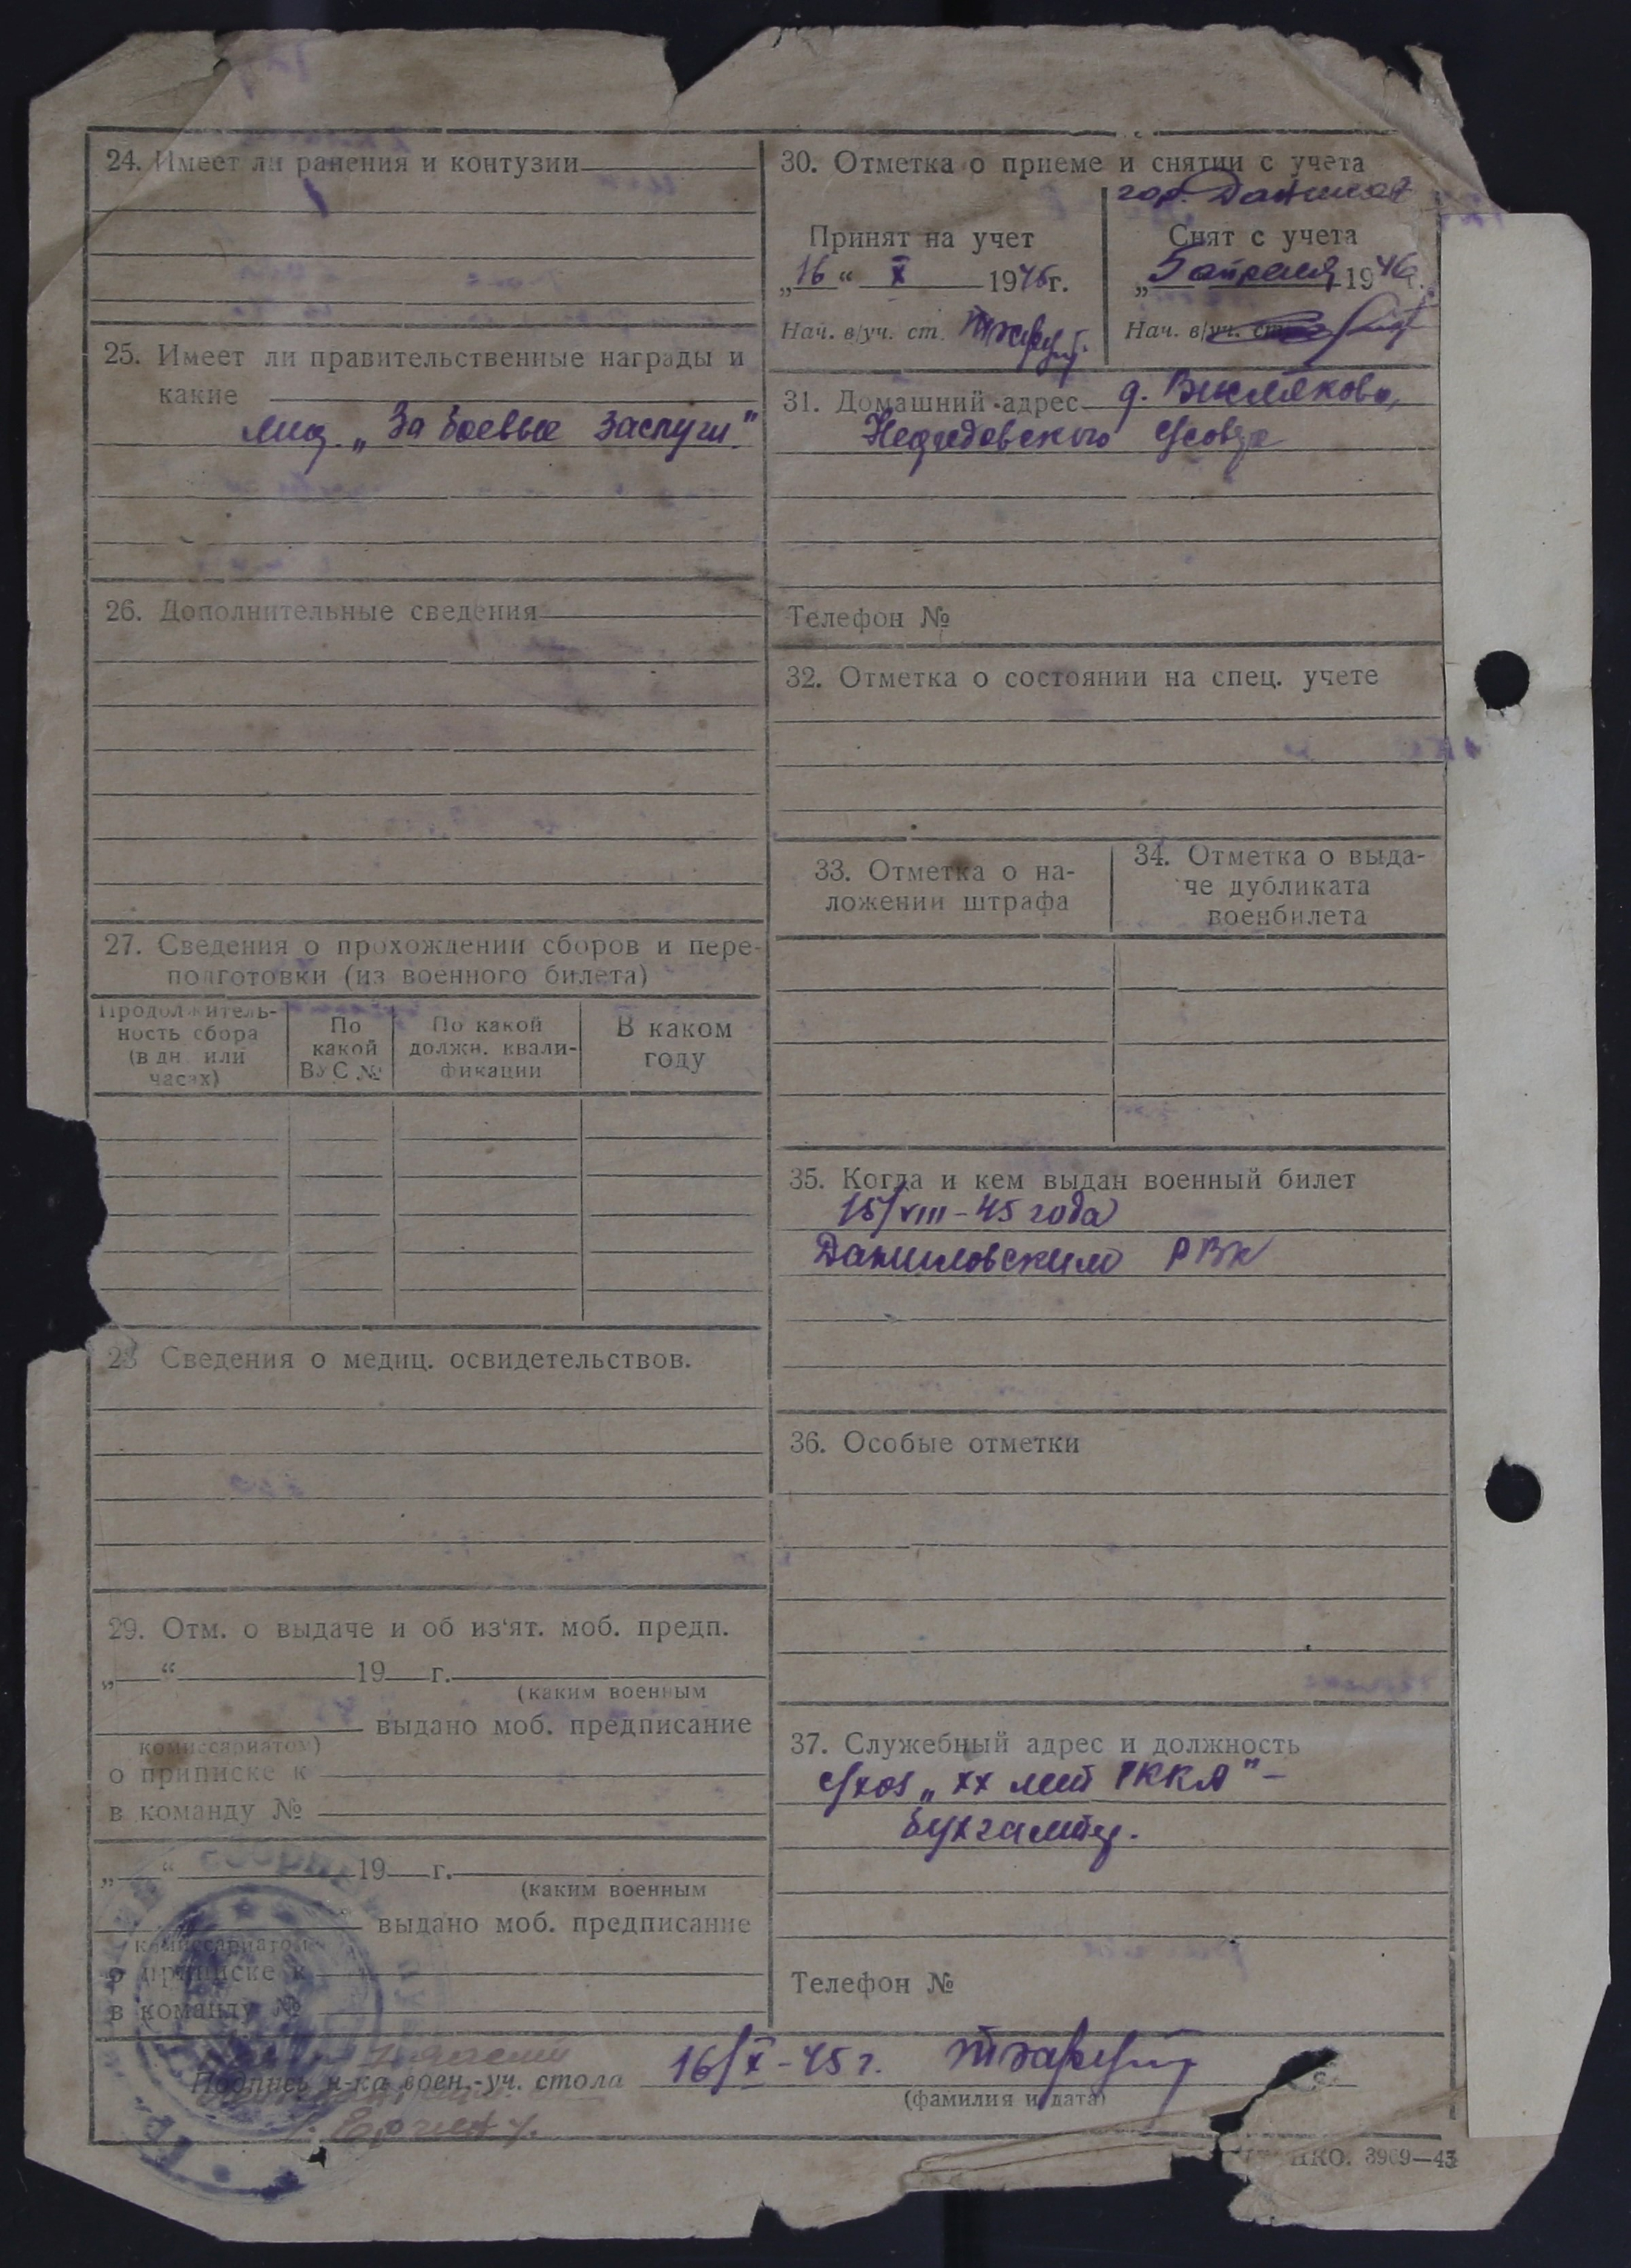 24. Имеет ли ранения и контузии
25. Имеет ли правительственные награды и
какие
мед. „За боевые заслуги."
26. Дополнительные сведения
27. Сведения о прохождении сборов и пере-
подготовки (из военного билета)
Продолжитель-
ность сбора
(в дн. или
часах)
По
какой
ВУС №
По какой
должн. квали-
фикации
В каком
году
28 Сведения о медиц. освидетельствов.
29. Отм. о выдаче и об из'ят. моб. предп.
„ “ 19 г.
(каким военным
выдано моб. предписание
комиссариатом)
о приписке к
в команду №
„ “ 19 г.
(каким военным
выдано моб. предписание
комиссариатом
о приписке к
в команду №
30. Отметка о приеме и снятии с учета
гор.
Принят на учет
„16“ X 1945г.
Нач. в/уч. ст.
Снят с учета
„5 апреля 1946г.
Нач. в/уч. ст.
31. Домашний адрес д.
Телефон №
32. Отметка о состоянии на спец. учете
33. Отметка о на-
ложении штрафа
34. Отметка о выда-
че дубликата
военбилета
35. Когда и кем выдан военный билет
15/VIII-45 года
Даниловским РВК
36. Особые отметки
37. Служебный адрес и должность
с/хоз „XX лет РККА" –
бухгалтер.
Телефон №
Подпись н-ка воен.-уч. стола 16/X-45 г.
(фамилия и дата)
НКО. 3969—43